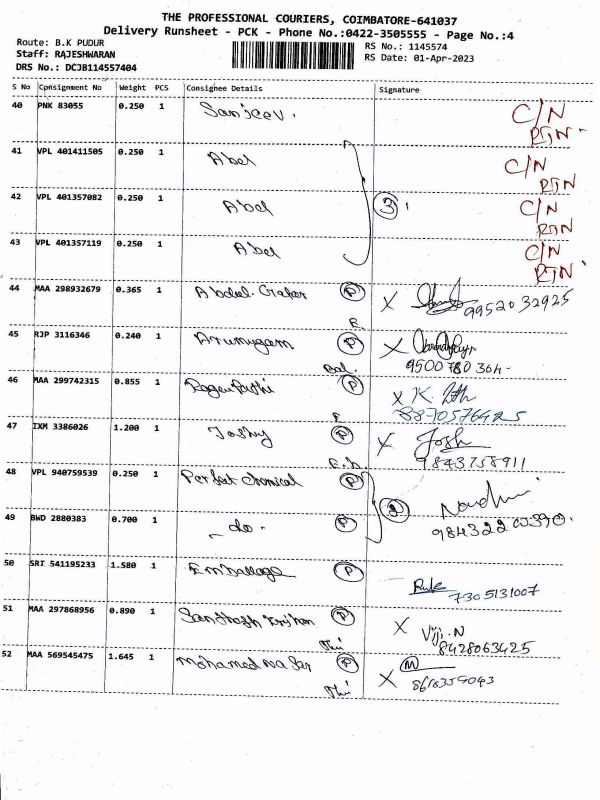 THE PROFESSIONAL COURIERS, COIMBATORE-641037
Delivery Runsheet - PCK - Phone No.:0422-3505555 - Page No.:4
Route: B.K PUDUR
RS No.: 1145574
Staff: RAJESHWARAN
RS Date: 01-Apr-2023
DRS No.: DCJB114557404
S No Consignment No Weight PCS Consignee Details Signature
40 PNK 83055 0.250 1 Sanjeev. C/N RTN
41 VPL 401411505 0.250 1 Abel C/N RTN
42 VPL 401357082 0.250 1 Abel 3 C/N RTN
43 VPL 401357119 0.250 1 Abel C/N RTN
44 MAA 298932679 0.365 1 Abdul Gafar P X 9952032925
45 RJP 3116346 0.240 1 Arumugam P X 9500780364
46 MAA 299742315 0.855 1 P X K. 8870576425
47 IXM 3386026 1.200 1 Joshy P X Josh 9843758911
48 VPL 940759539 0.250 1 Perfect chemical P
49 BWD 2880383 0.700 1 - do - P 2
50 SRT 541195233 1.580 1 Emballage P 7305131007
51 MAA 297868956 0.890 1 P X Viji. N 8428063425
52 MAA 569545475 1.645 1 Mohamed Nasar P X